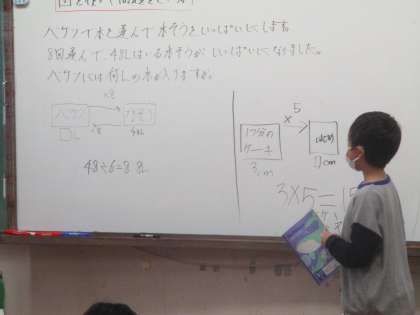 バケツで水を運んで水そうをいっぱいにします。
8回運んで、48Lはいる水そうがいっぱいになりました。
バケツには何Lの水が入りますか。
バケツ
水そう
□L
48L
×8
÷8
48÷6=8 8L
×5
1つ分の
ケーキ
3cm
□cm
3×5=15